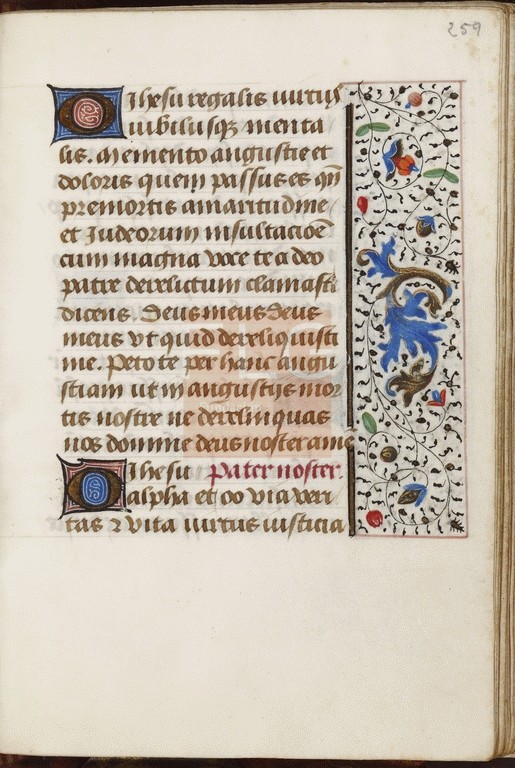 259
O Ihesu regalis uirtus
iubilusqȝ menta
lis. Memento angustie et
doloris quem passus es qn̄
pre mortis amaritudine
et Iudeorum insultacioē
cum magna voce te a deo
patre derelictum clamasti
dicens. Deus meus deus
meus vt quid dereliquisti
me. Peto te per hanc angu
stiam ut in angustijs mor
tis nostre ne derelinquas
nos domine deus noster ame
O Ihesu Pater noster.
alpha et oo via veri
tas ⁊ vita uirtus iusticia